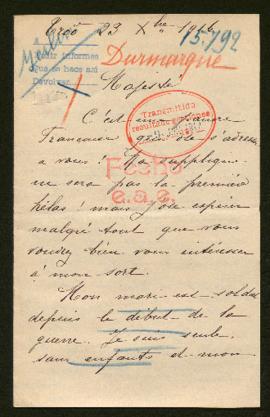 23 Xbre 1916
15.792
Pedir informes
que se hace así
Devolver
Durmargne
Majesté
C'est une pauvre
Transmitida
Française qui ose s'adresser
à vous ! Ma supplique
ne sera pas la première
Fecho
hélas ! mais j'ose espérer
malgré tout que vous
voudrez bien vous intéresser
à mon sort.
Mon mari est soldat
depuis le début de la
guerre. Je suis seule,
sans enfants et mon